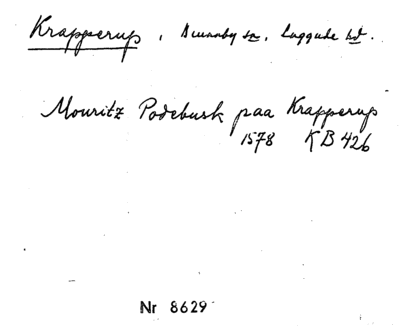 Krapperup, Brunnby sn, Luggude hd.
Mouritz Podebusk paa Krapperup
1578 KB 426
Nr 8629